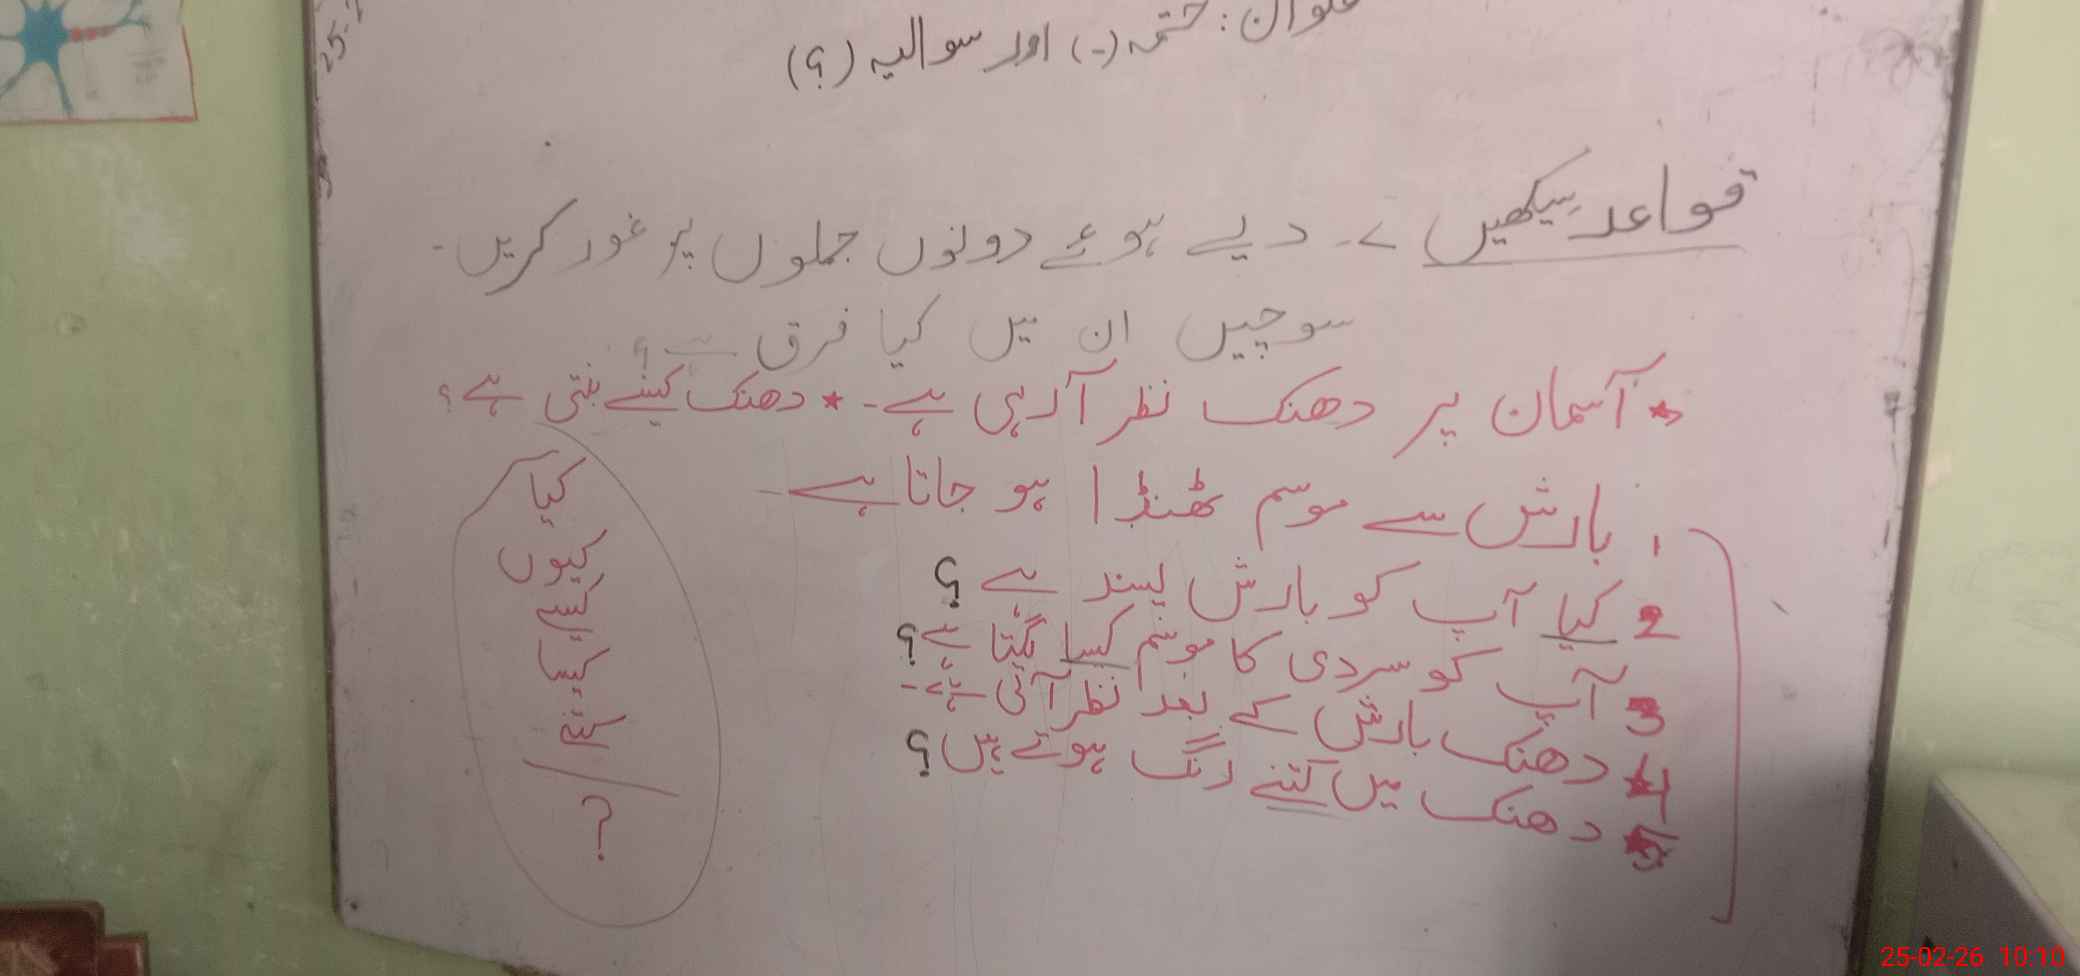 25-
عنوان: ختمہ (-) اور سوالیہ (؟)
قواعد سیکھیں > دیے ہوئے دونوں جملوں پر غور کریں-
سوچیں ان میں کیا فرق ہے؟
* آسمان پر دھنک نظر آرہی ہے- * دھنک کیسے بنتی ہے؟
1. بارش سے موسم ٹھنڈا ہو جاتا ہے-
2 کیا آپ کو بارش پسند ہے؟
3 آپ کو سردی کا موسم کیسا لگتا ہے؟
4 دھنک بارش کے بعد نظر آتی ہے-
5 دھنک میں کتنے رنگ ہوتے ہیں؟
کیا
کیوں
کیسے
کتنے
?
25-02-26 10:10